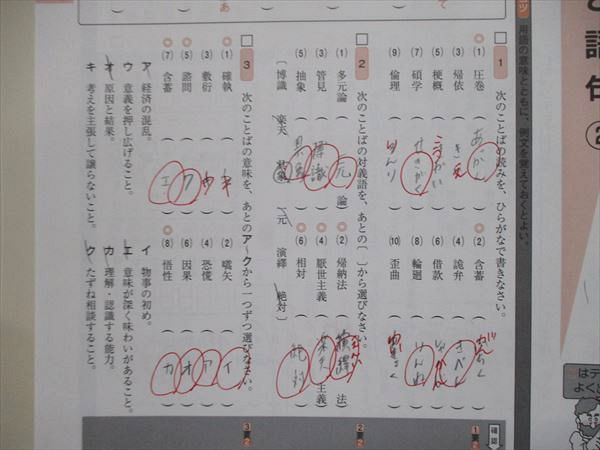 用語の意味とともに、例文を覚えておくとよい。
語句
②
1 次のことばの読みを、ひらがなで書きなさい。
(1) 圧巻 (あっかん)
(2) 含蓄
(3) 帰依 (きえ)
(4) 詭弁 (きべん)
(5) 梗概
(6) 借款
(7) 碩学 (せきがく)
(8) 輪廻 (りんね)
(9) 倫理 (りんり)
(10) 歪曲
2 次のことばの対義語を、あとの〔 〕から選びなさい。
(1) 多元論 (元論)
(2) 帰納法 (演繹法)
(3) 管見 (博識)
(4) 厭世主義 (楽天主義)
(5) 抽象 (具象)
(6) 相対 (絶対)
〔博識 楽天 具象 一元 演繹 絶対〕
3 次のことばの意味を、あとのア〜クから一つずつ選びなさい。
(1) 確執 (キ)
(2) 嚆矢 (イ)
(3) 敷衍 (ウ)
(4) 恐慌 (ア)
(5) 諮問 (ク)
(6) 因果 (オ)
(7) 含蓄 (エ)
(8) 悟性 (カ)
ア 経済の混乱。
イ 物事の初め。
ウ 意義を押し広げること。
エ 意味が深く味わいがあること。
オ 原因と結果。
カ 理解・認識する能力。
キ 考えを主張して譲らないこと。
ク たずね相談すること。
確認